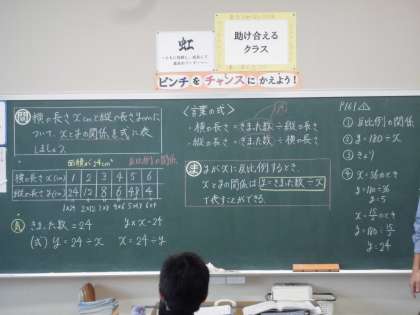 虹
助け合える
クラス
ピンチをチャンスにかえよう！
問 横の長さxcmと縦の長さycmに
ついて、xとyの関係を式に表
しましょう。
面積が24cm²
反比例の関係
横の長さx(cm) 1 2 3 4 5 6
縦の長さy(cm) 24 12 8 6 4.8 4
1×24 2×12 3×8 4×6 5×4.8 6×4
きまった数=24
y×x=24
(式) y=24÷x
x=24÷y
〈言葉の式〉
・横の長さ=きまった数÷縦の長さ
・縦の長さ=きまった数÷横の長さ
ま yがxに反比例するとき、
xとyの関係は y=きまった数÷x
で表すことができる。
P161
① 反比例の関係
② y=180÷x
③
④ x=36のとき
y=180÷36
y=5
のとき
y=24